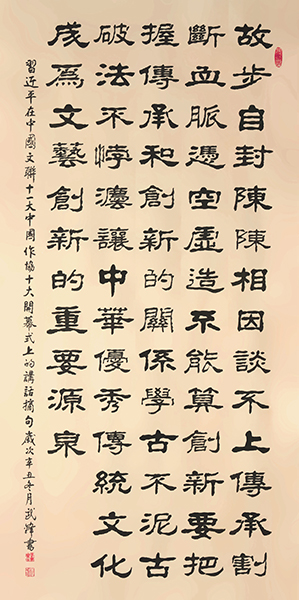 故步自封陳陳相因談不上傳承割
斷血脈憑空虛造不能算創新要把
握傳承和創新的關係學古不泥古
破法不悖灋讓中華優秀傳統文化
成爲文藝創新的重要源泉
習近平在中國文聯十一大中國作協十大開幕式上的講話摘句歲次辛丑冬月武烽書